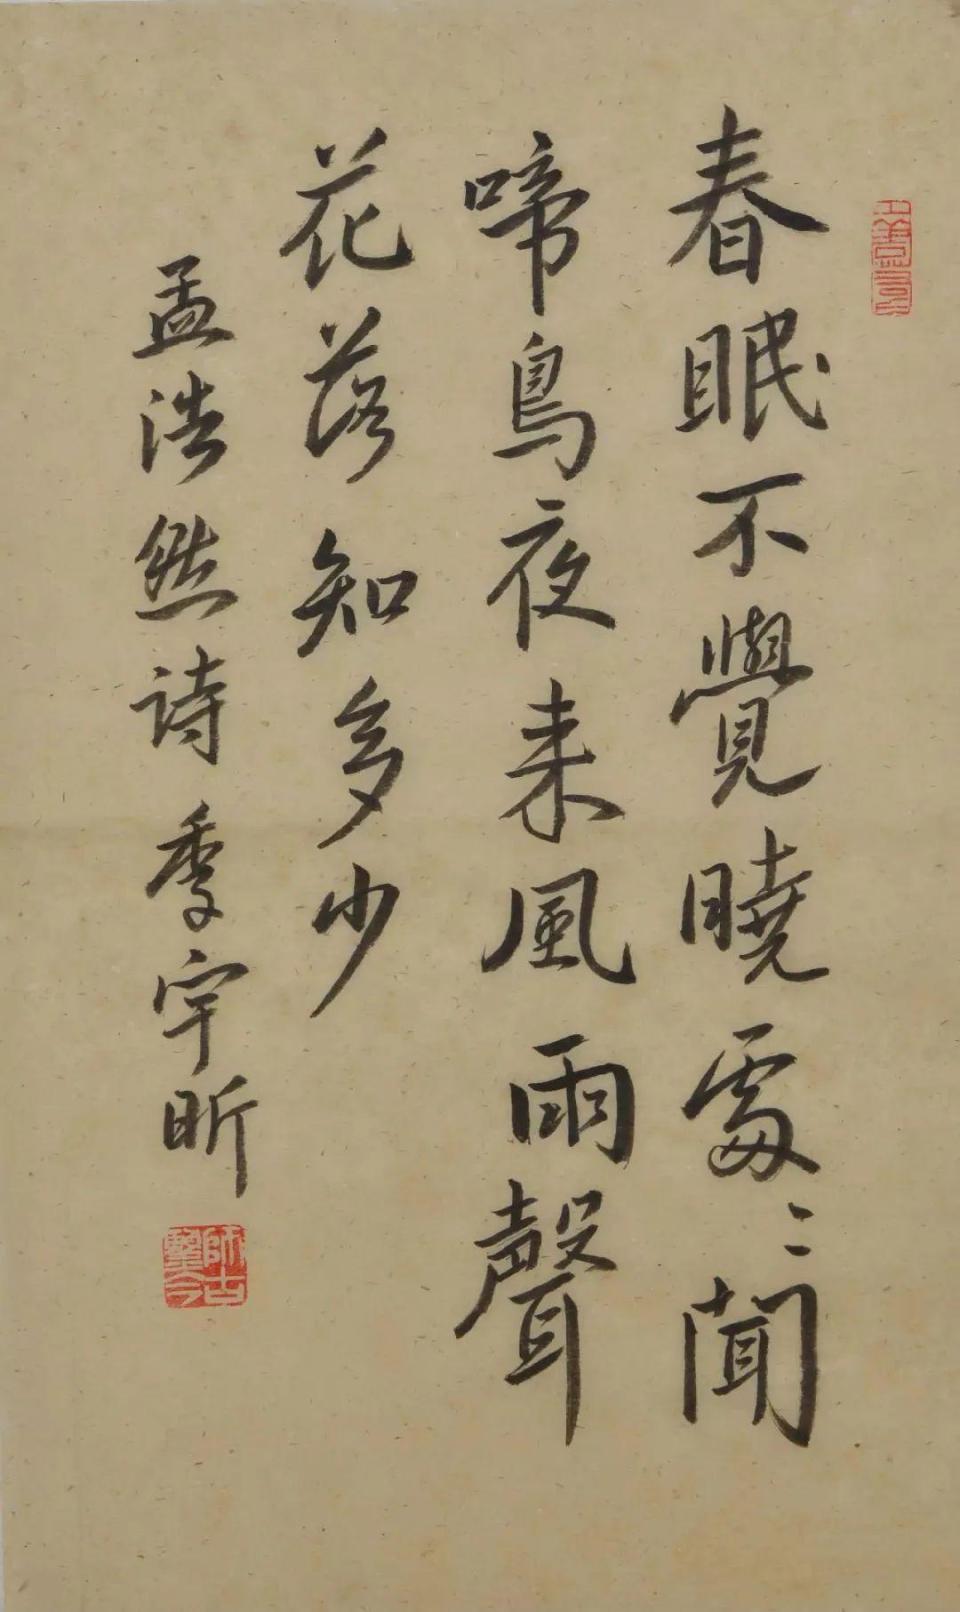 春眠不覺曉處〻聞
啼鳥夜来風雨聲
花落知多少
孟浩然詩季宇昕
師古鑒今